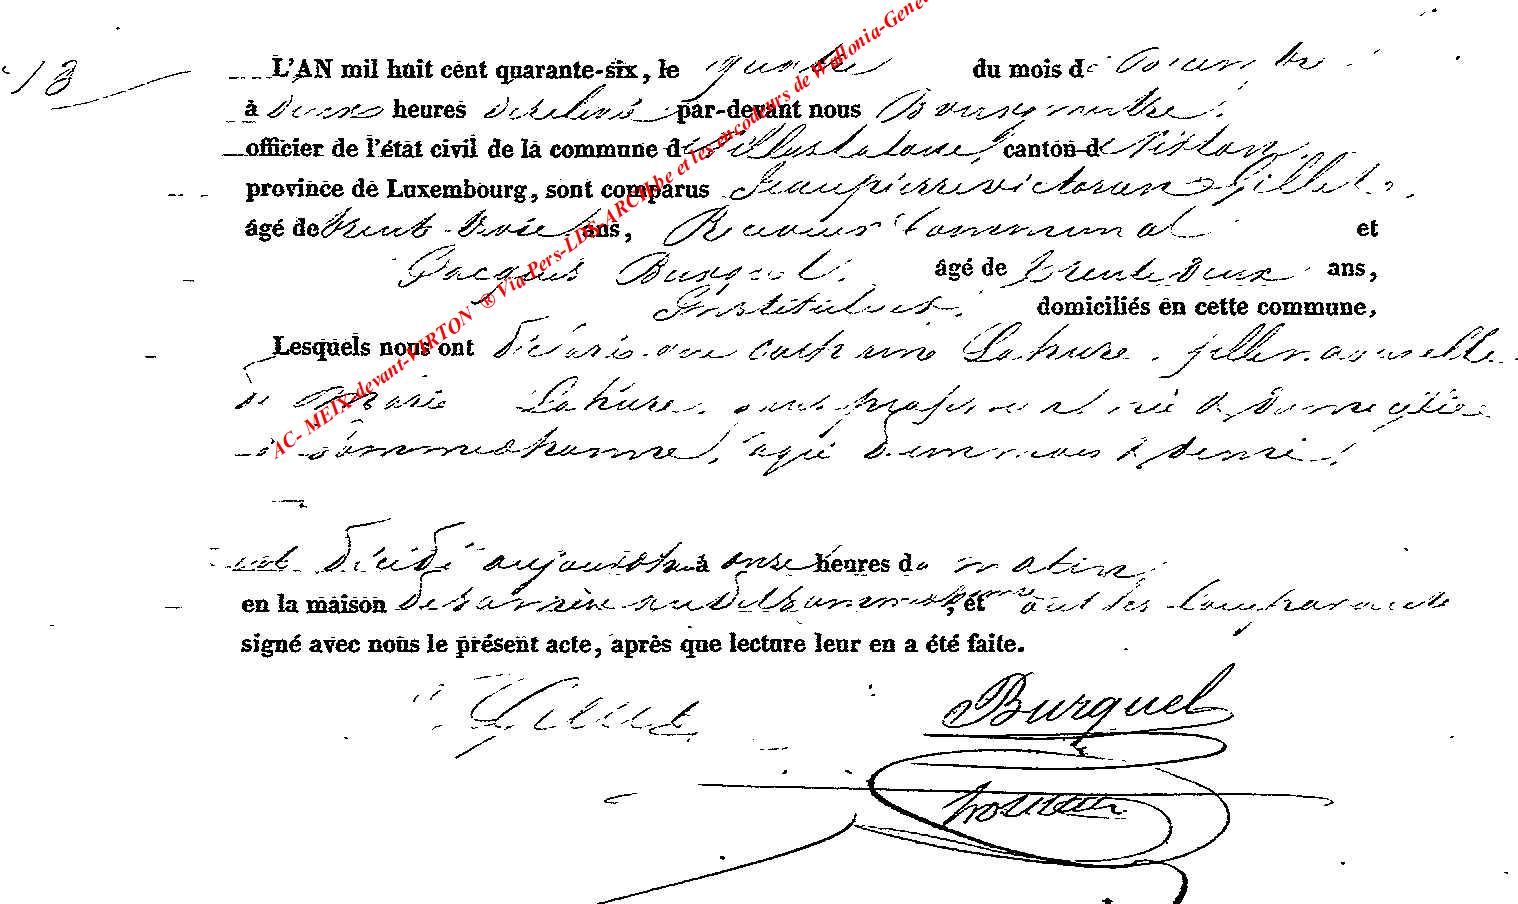 13
L'AN mil huit cent quarante-six, le quatre du mois de Décembre
à deux heures de relevée par-devant nous Bourgmestre
officier de l'état civil de la commune de Villers la loue, canton de Virton
province de Luxembourg, sont comparus Jean pierre victorien Gillet
âgé de trente-trois ans, Receveur Communal et
Jacques Burquel âgé de trente deux ans,
Instituteur domiciliés en cette commune,
Lesquels nous ont déclaré que catherine Lahure, fille naturelle
de Marie Lahure, sans profession née & domiciliée
à Sommethonne, agée d'un mois & demi
est décédé aujourd'hui à onze heures du matin
en la maison de sa mère audit Sommethonne, et ont les comparants
signé avec nous le présent acte, après que lecture leur en a été faite.
Gillet
Burquel
AC- MEIX-devant-VIRTON ® Via Pers-LDS-ARCH.be et les encodeurs de Wallonia-Gene